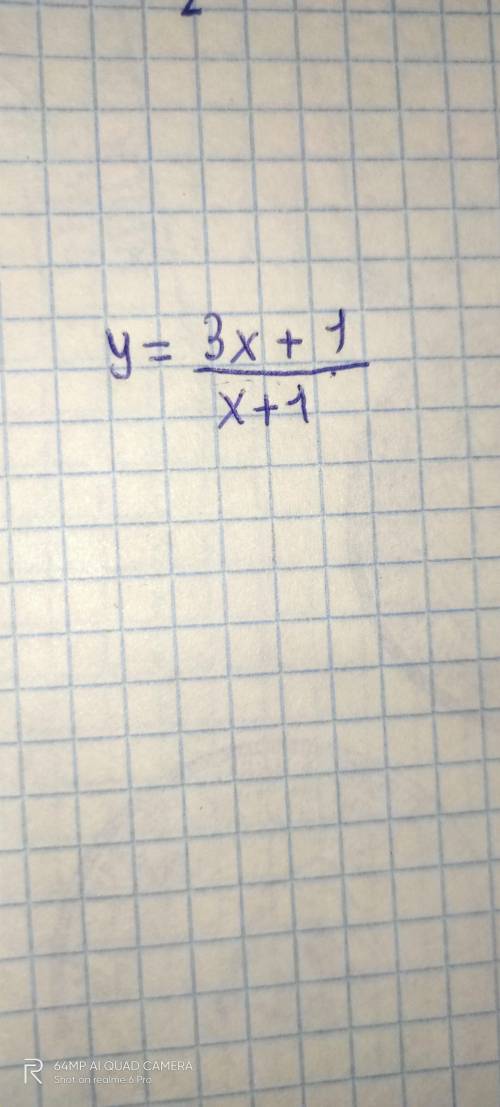 y = 3x + 1
x + 1
64MP AI QUAD CAMERA
Shot on realme 6 Pro